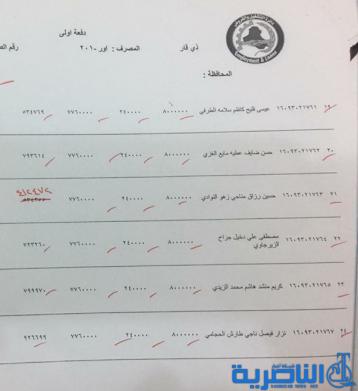 دفعة اولى
ذي قار
المصرف : اور -٢٠١
رقم
المحافظة :
Employment & Loans
١٩ ١٦٠٩٣٠٢١٧٦١ عيسى فليح كاظم سلامه الطرفي ٨٠٠٠٠٠٠ ٢٤٠٠٠٠ ٧٧٦٠٠٠٠ ٥٣٤٧٦٩
٢٠ ١٦٠٩٣٠٢١٧٦٢ حسن ضايف عطيه مايع الغزي ٨٠٠٠٠٠٠ ٢٤٠٠٠٠ ٧٧٦٠٠٠٠ ٧٩٣٦١٤
٢١ ١٦٠٩٣٠٢١٧٦٣ حسين رزاق مناحي زهو النوادي ٨٠٠٠٠٠٠ ٢٤٠٠٠٠ ٧٧٦٠٠٠٠
٢٢ ١٦٠٩٣٠٢١٧٦٤ مصطفى علي دخيل جراح الزيرجاوي ٨٠٠٠٠٠٠ ٢٤٠٠٠٠ ٧٧٦٠٠٠٠ ٧٢٣٢٦٠
٢٣ ١٦٠٩٣٠٢١٧٦٥ كريم منشد هاشم محمد الزيدي ٨٠٠٠٠٠٠ ٢٤٠٠٠٠ ٧٧٦٠٠٠٠ ٧٩٩٩٧٠
٢٤ ١٦٠٩٣٠٢١٧٦٧ نزار فيصل ناجي طارش الحجامي ٨٠٠٠٠٠٠ ٢٤٠٠٠٠ ٧٧٦٠٠٠٠ ٩٢٦٦٩٩
شبكة اخبار
الناصرية